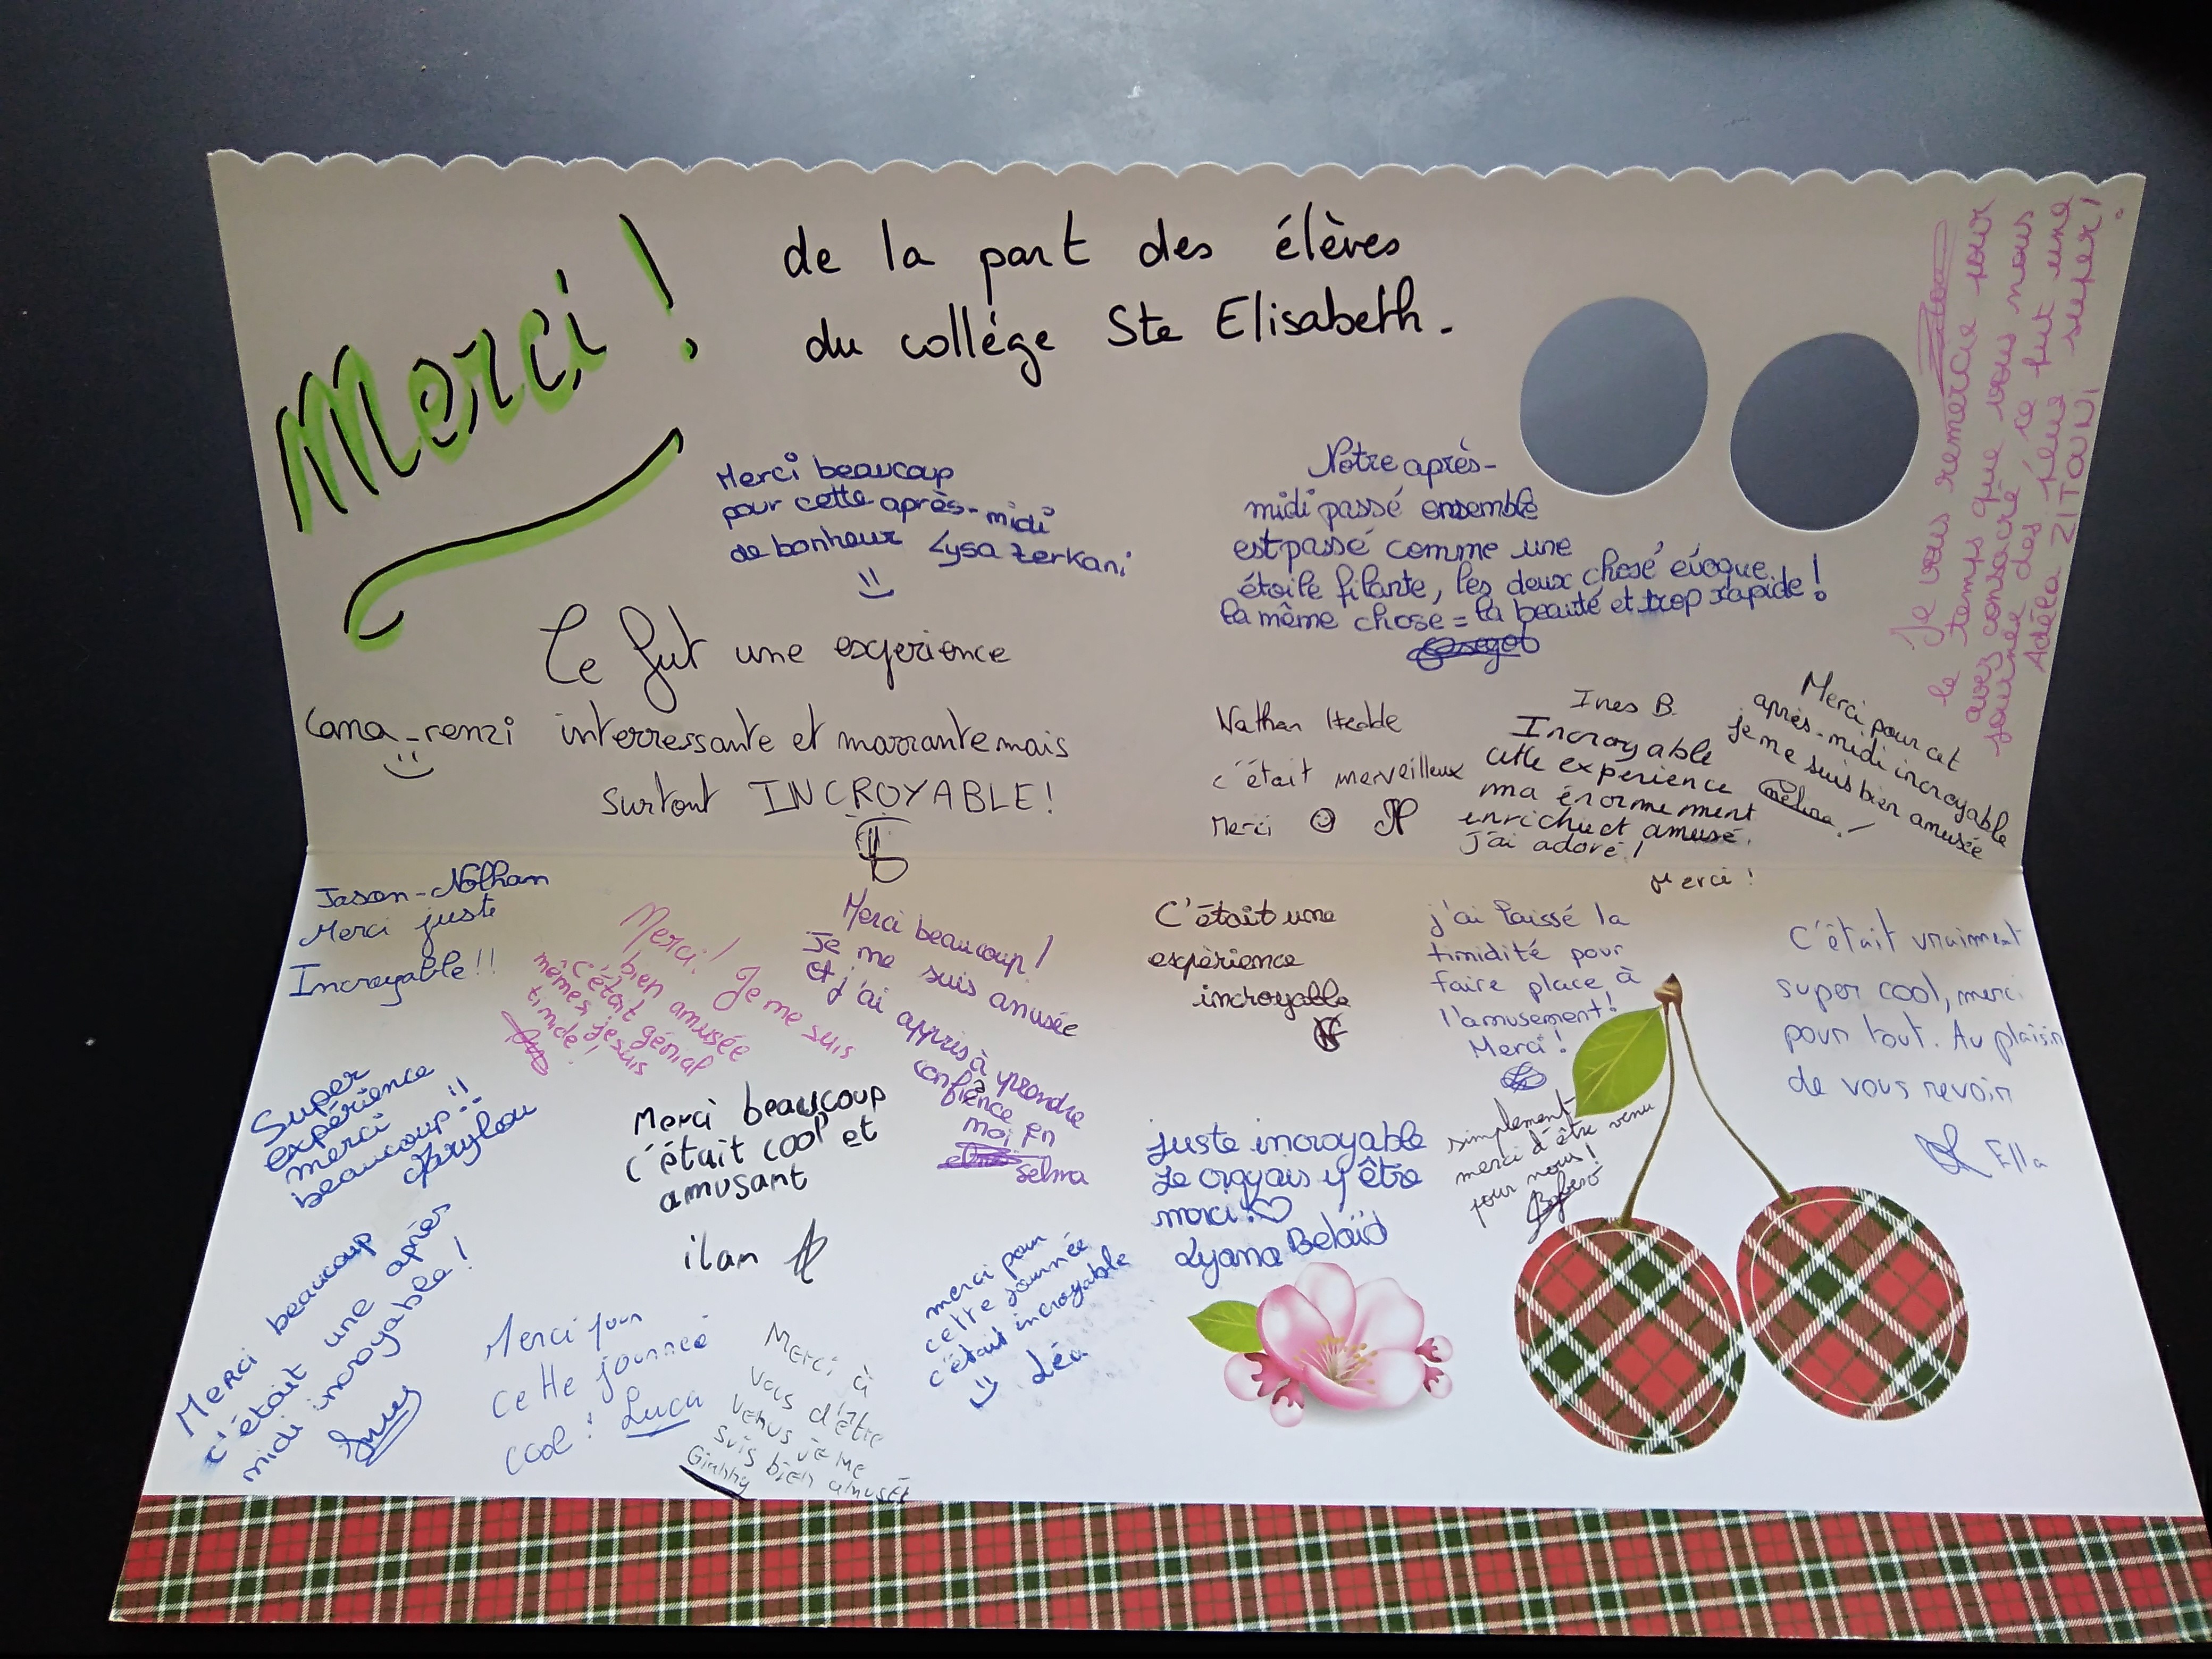 Merci !
de la part des élèves
du collége Ste Elisabeth.
Merci beaucoup
pour cette après-midi
de bonheur Lysa Zerkani
Notre après-
midi passé ensemble
est passé comme une
étoile filante, les deux chose évoque
la même chose = la beauté et trop rapide !
Je vous remercie pour
le temps que vous nous
avez consacré ce fut une
journée des plus super !
Adéla ZITOUNI
Ce fut une experience
interressante et marrante mais
surtout INCROYABLE !
Lana-renzi
Nathan Hedde
c'était merveilleux
Merci
Ines B.
Incroyable
cette expérience
ma énormement
enrichie et amusé.
j'ai adoré !
Merci !
Merci pour cet
après-midi incroyable
je me suis bien amusée
!
Jason-Nolhan
Merci juste
Incroyable !!
Merci ! Je me suis
bien amusée
c'était génial
mêmes je suis
timide !
Merci beaucoup !
Je me suis amusée
et j'ai appris à prendre
confience
moi en
Selma
C'était une
expèrience
incroyable
j'ai laissé la
timidité pour
faire place à
l'amusement !
Merci !
C'était vraiment
super cool, merci
pour tout. Au plaisir
de vous revoir
Ella
Super
expérience
merci
beaucoup !!
Marylou
Merci beaucoup
c'était cool et
amusant
ilan
juste incroyable
Je croyais y être
merci !
Lyana Belaïd
simplement
merci d'être venu
pour nous !
Merci beaucoup
c'était une après
midi incroyable !
Merci pour
cette journeé
cool ! Luca
Merci à
vous d'être
venus je me
suis bien amusée
Gianny
merci pour
cette journée
c'était incroyable
Léa